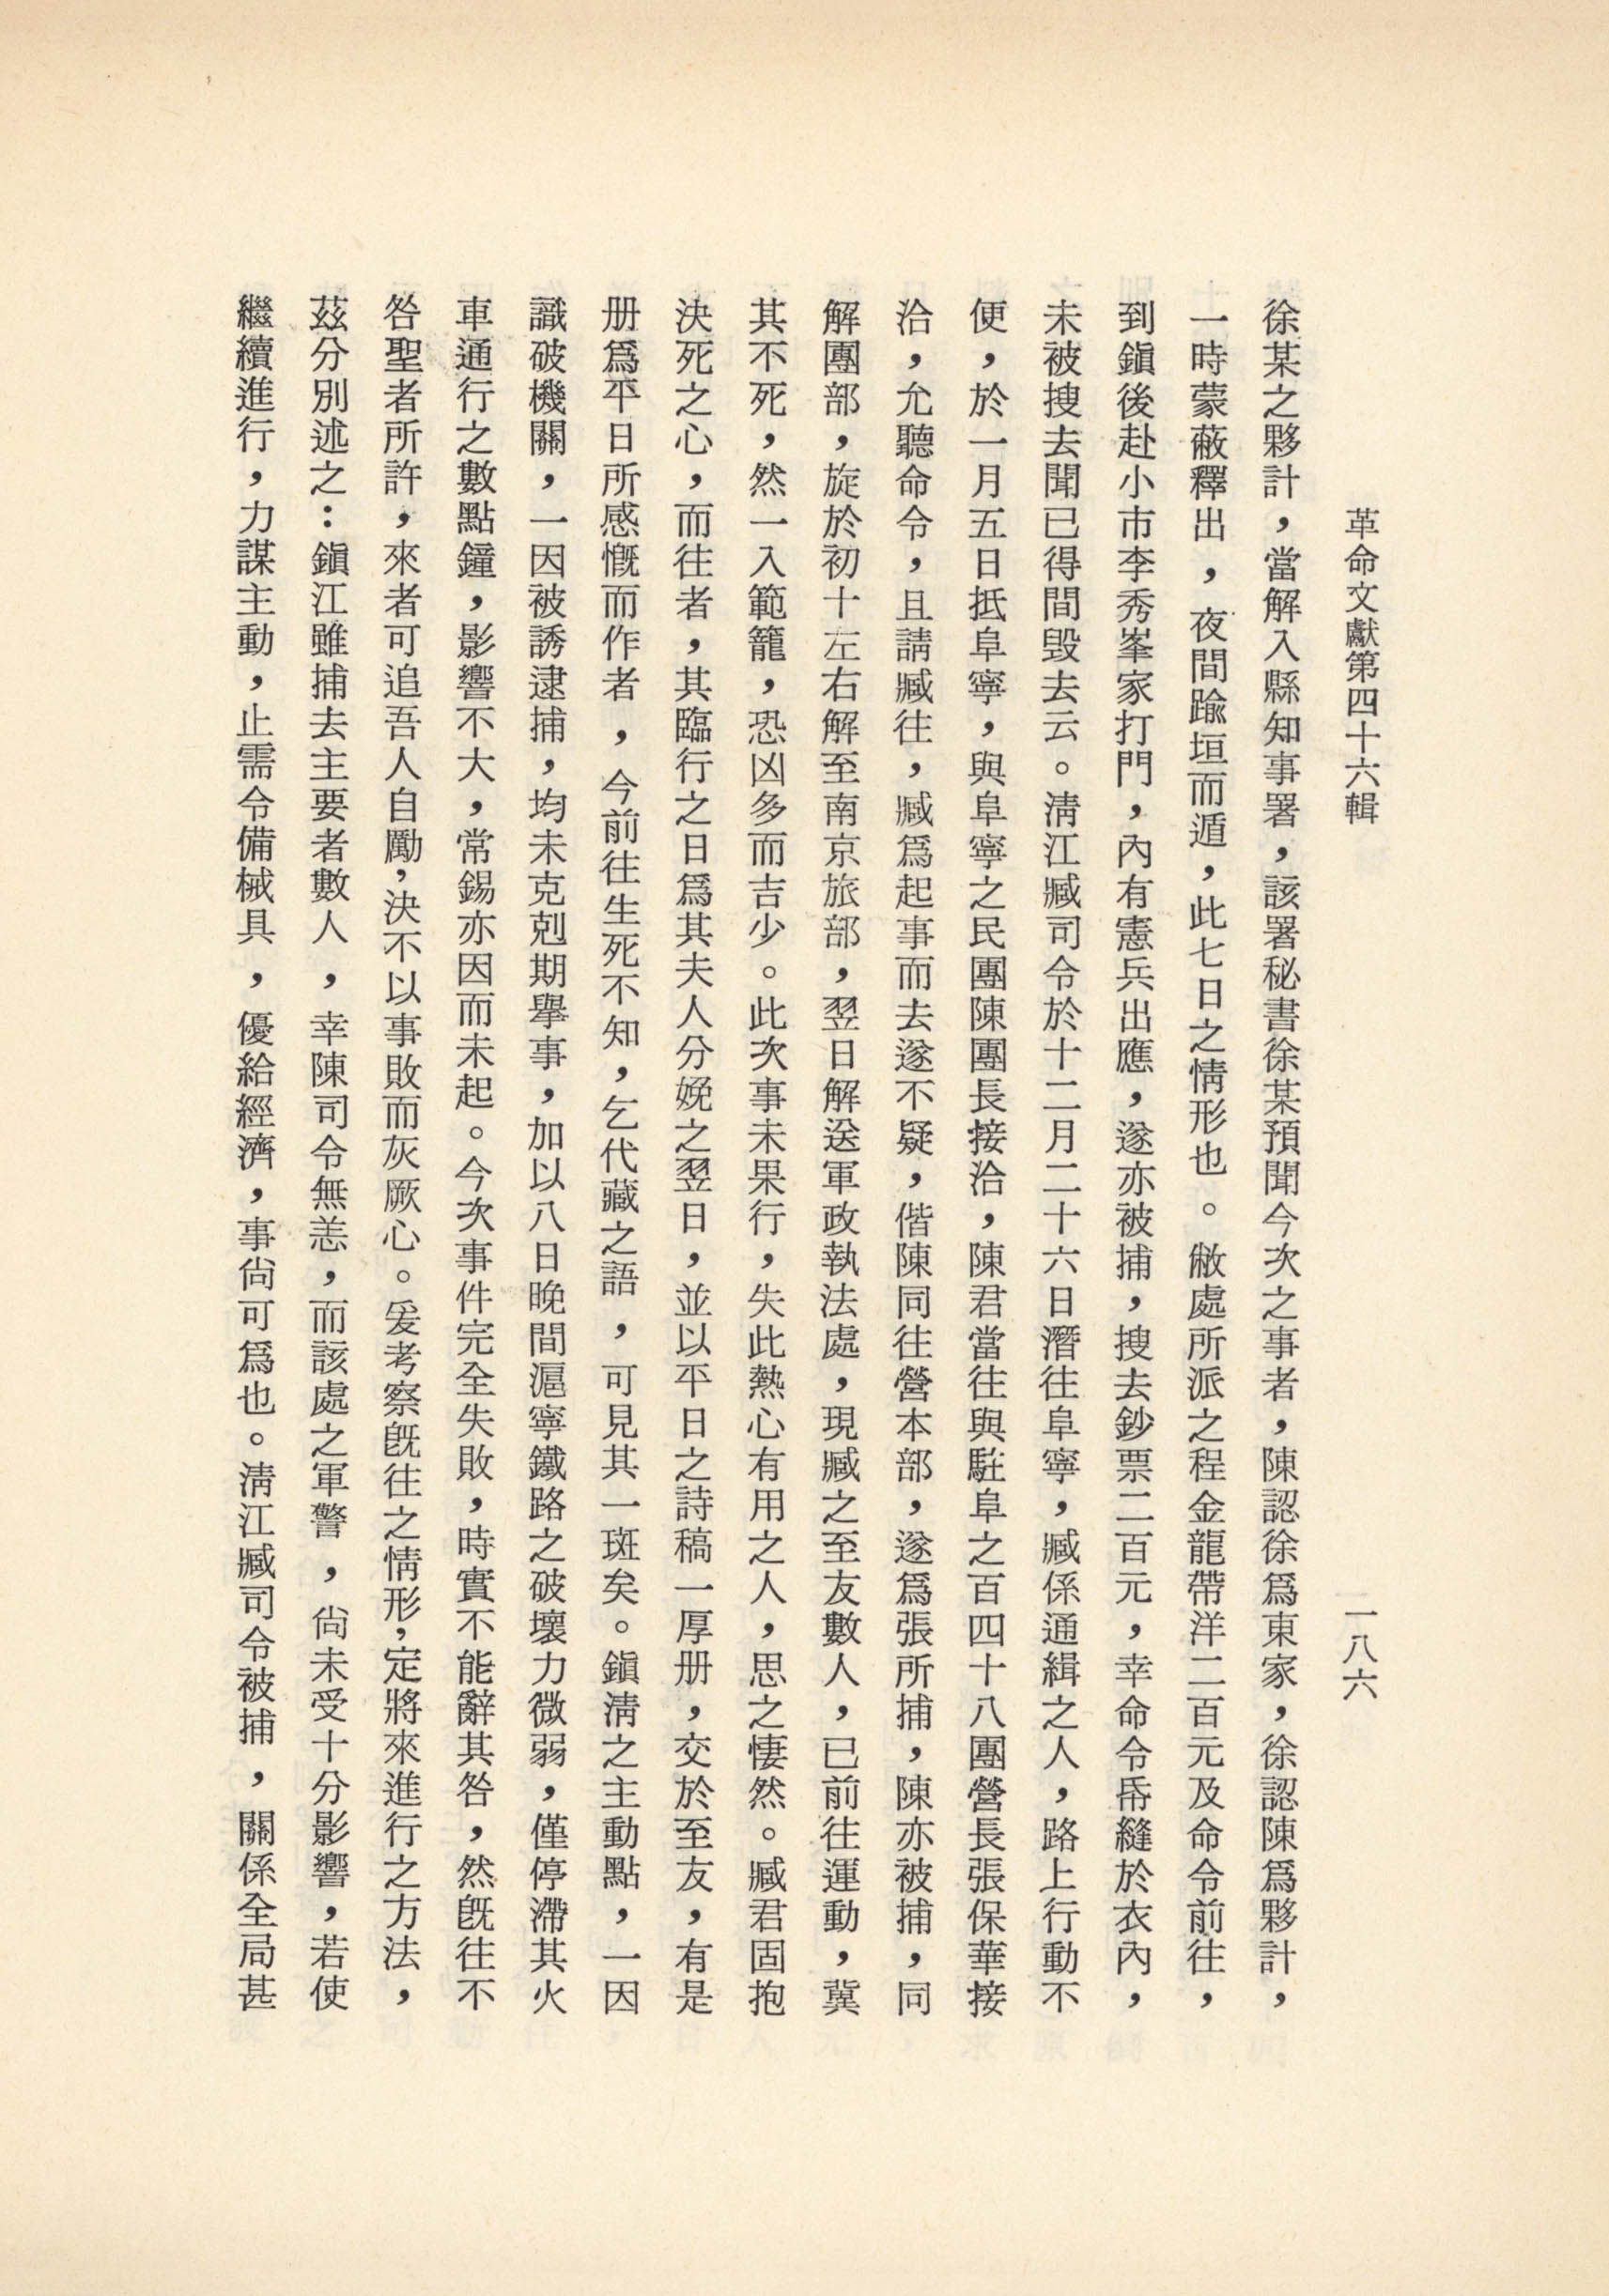 革命文獻第四十六輯
一八六
徐某之夥計，當解入縣知事署，該署秘書徐某預聞今次之事者，陳認徐爲東家，徐認陳爲夥計，
一時蒙蔽釋出，夜間踰垣而遁，此七日之情形也。敝處所派之程金龍帶洋二百元及命令前往，
到鎭後赴小市李秀峯家打門，內有憲兵出應，遂亦被捕，搜去鈔票二百元，幸命令帋縫於衣內，
未被搜去聞已得間毀去云。淸江臧司令於十二月二十六日潛往阜寧，臧係通緝之人，路上行動不
便，於一月五日抵阜寧，與阜寧之民團陳團長接洽，陳君當往與駐阜之百四十八團營長張保華接
洽，允聽命令，且請臧往，臧爲起事而去遂不疑，偕陳同往營本部，遂爲張所捕，陳亦被捕，同
解團部，旋於初十左右解至南京旅部，翌日解送軍政執法處，現臧之至友數人，已前往運動，冀
其不死，然一入範籠，恐凶多而吉少。此次事未果行，失此熱心有用之人，思之悽然。臧君固抱
決死之心，而往者，其臨行之日爲其夫人分娩之翌日，並以平日之詩稿一厚册，交於至友，有是
册爲平日所感慨而作者，今前往生死不知，乞代藏之語，可見其一斑矣。鎭淸之主動點，一因
識破機關，一因被誘逮捕，均未克剋期舉事，加以八日晚間滬寧鐵路之破壞力微弱，僅停滯其火
車通行之數點鐘，影響不大，常錫亦因而未起。今次事件完全失敗，時實不能辭其咎，然旣往不
咎聖者所許，來者可追吾人自勵，決不以事敗而灰厥心。爰考察旣往之情形，定將來進行之方法，
茲分別述之：鎭江雖捕去主要者數人，幸陳司令無恙，而該處之軍警，尙未受十分影響，若使
繼續進行，力謀主動，止需令備械具，優給經濟，事尙可爲也。淸江臧司令被捕，關係全局甚